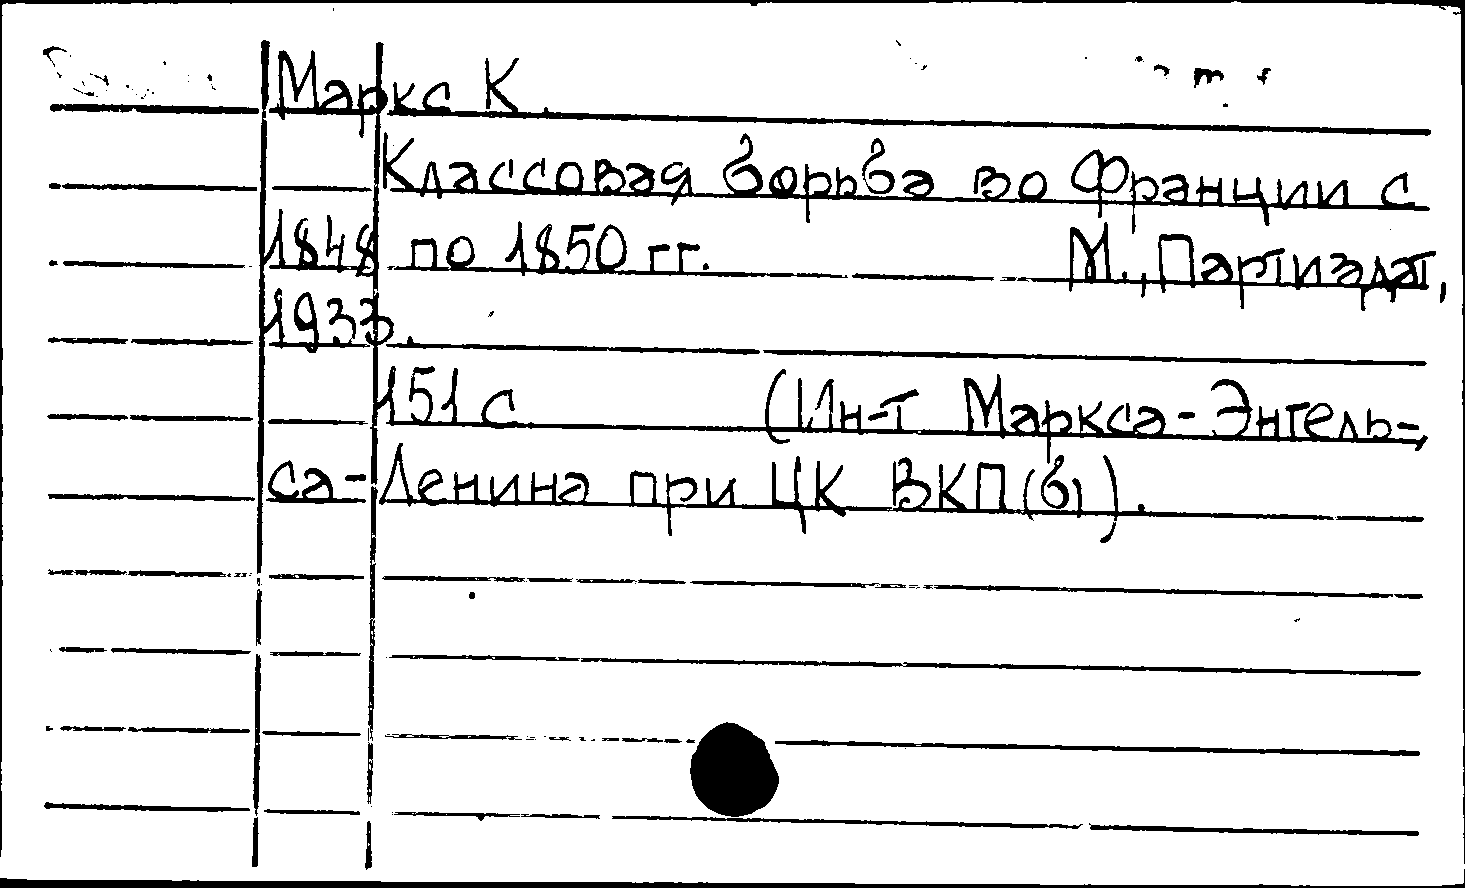 Маркс К.
Классовая борьба во Франции с
1848 по 1850 гг. М., Партиздат,
1933.
151 с. (Ин-т Маркса-Энгель-
са-Ленина при ЦК ВКП(б)).